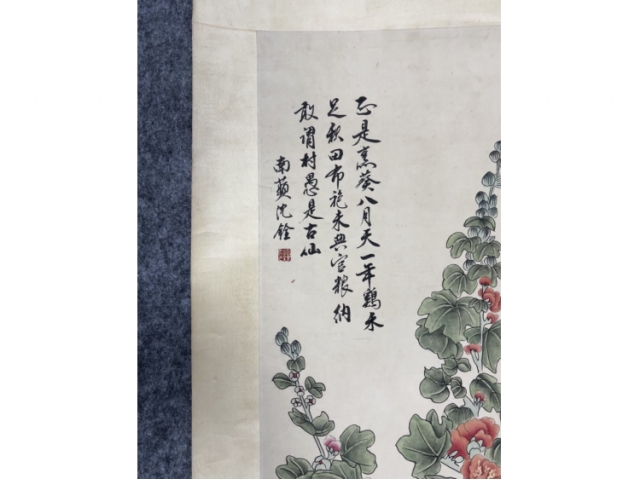 正是烹葵八月天一年鶏米
足秋田布袍未典官粮納
敢謂村愚是古仙
南蘋沈銓